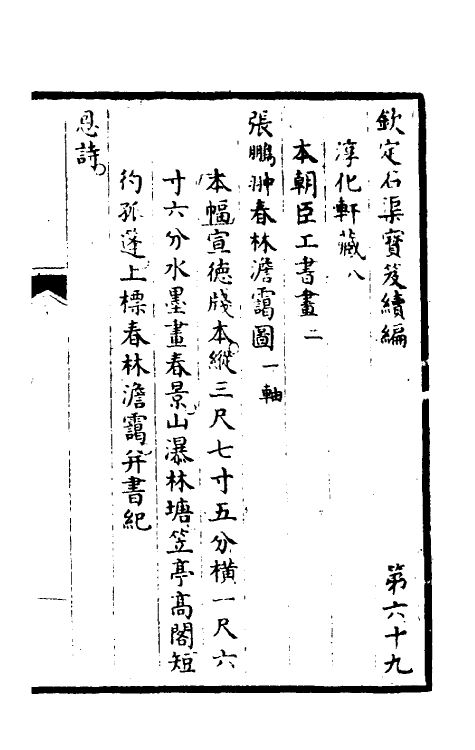 欽定石渠寶笈續編 第六十九
淳化軒藏八
本朝臣工書畫二
張鵬翀春林澹靄圖一軸
本幅宣德牋本縱三尺七寸五分橫一尺六
寸六分水墨畫春景山瀑林塘笠亭高閣短
彴孤篷上標春林澹靄并書紀
恩詩